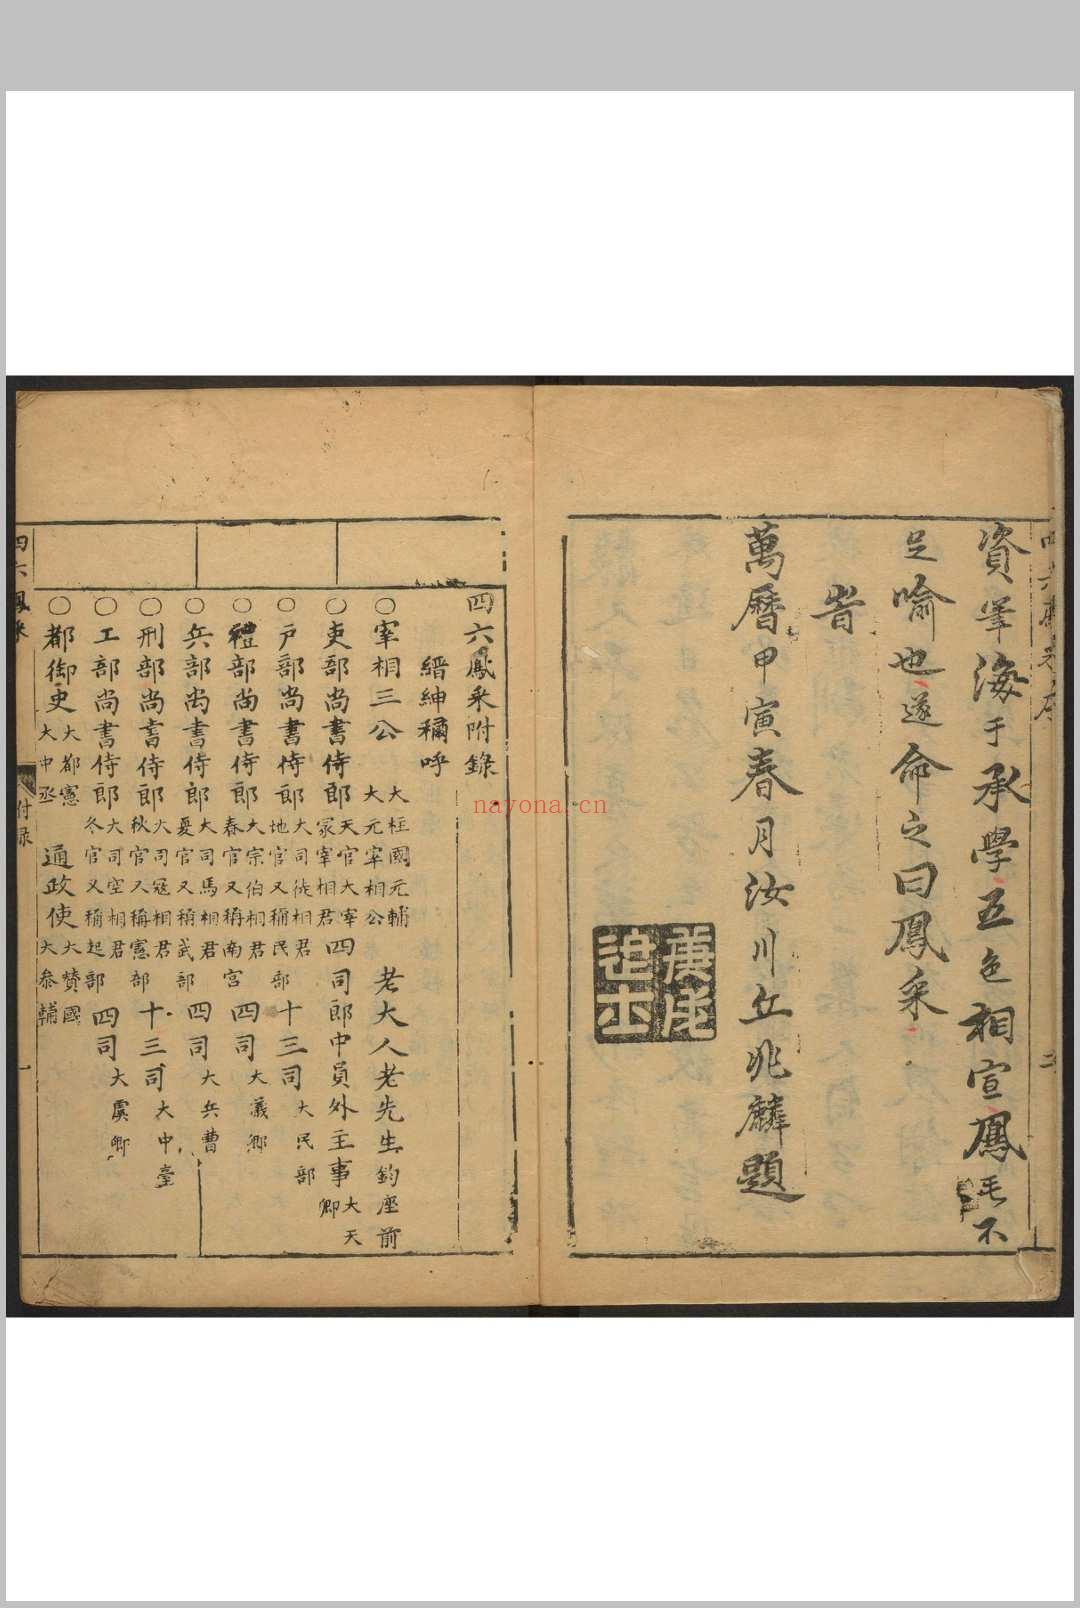 資筆海于承學五色相宣鳳毛不
足喻也遂命之曰鳳采
旹
萬曆甲寅春月汝川丘兆麟題
庚戌進士
四六鳳采附錄
縉紳稱呼
○宰相三公 大柱國元輔 大元宰相公 老大人老先生鈞座前
○吏部尚書侍郎 天官大宰 冢宰相君 四司郎中員外主事 大天卿
○戶部尚書侍郎 大司徒相君 地官又稱民部 十三司 大民部
○禮部尚書侍郎 大宗伯相君 春官又稱南宮 四司 大儀卿
○兵部尚書侍郎 大司馬相君 夏官又稱武部 四司 大兵曹
○刑部尚書侍郎 大司寇相君 秋官又稱憲部 十三司 大中臺
○工部尚書侍郎 大司空相君 冬官又稱起部 四司 大虞卿
○都御史 大都憲 大中丞 通政使 大贊國 大參輔
四六鳳采
付録
一
nayona.cn